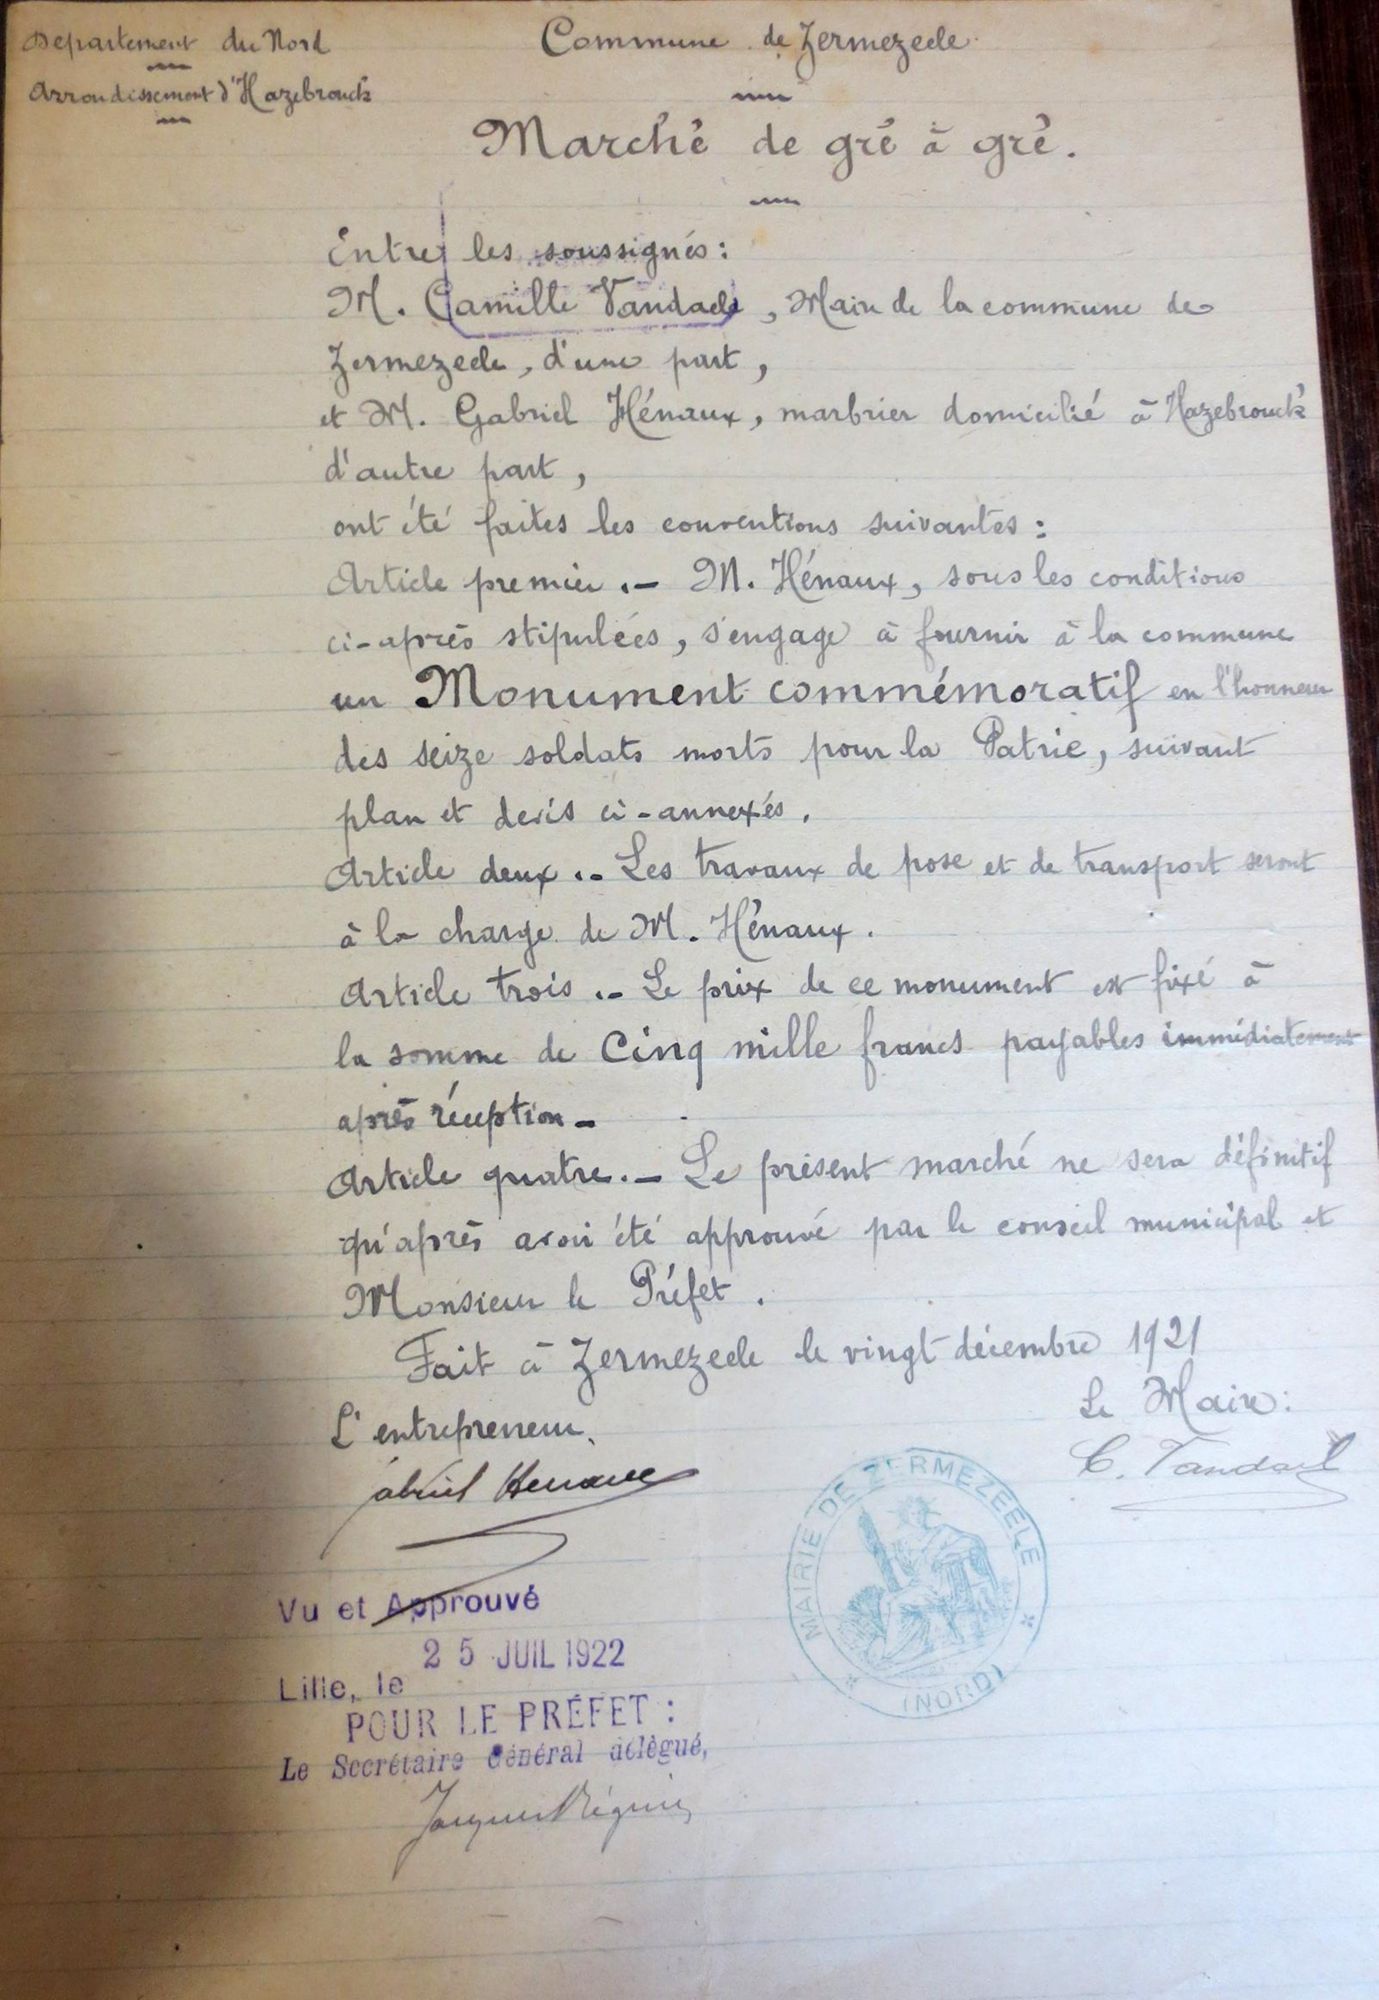 Departement du Nord
Arrondissement d'Hazebrouck
Commune de Zermezeele
Marché de gré à gré.
Entre les soussignés :
M. Camille Vandaele, Maire de la commune de
Zermezeele, d'une part,
et M. Gabriel Hénaux, marbrier domicilié à Hazebrouck
d'autre part,
ont été faites les conventions suivantes :
Article premier .— M. Hénaux, sous les conditions
ci-après stipulées, s'engage à fournir à la commune
un Monument commémoratif en l'honneur
des seize soldats morts pour la Patrie, suivant
plan et devis ci-annexés.
Article deux .- Les travaux de pose et de transport seront
à la charge de M. Hénaux.
Article trois .- Le prix de ce monument est fixé à
la somme de Cinq mille francs payables immédiatement
après réception -
Article quatre .— Le présent marché ne sera définitif
qu'après avoir été approuvé par le conseil municipal et
Monsieur le Préfet.
Fait à Zermezeele le vingt décembre 1921
Le Maire :
L'entrepreneur,
C. Vandaele
Gabriel Henaux
MAIRIE DE ZERMEZEELE
(NORD)
Vu et Approuvé
25 JUIL 1922
Lille, le
POUR LE PRÉFET :
Le Secrétaire Général délégué,
Jacques Régnier